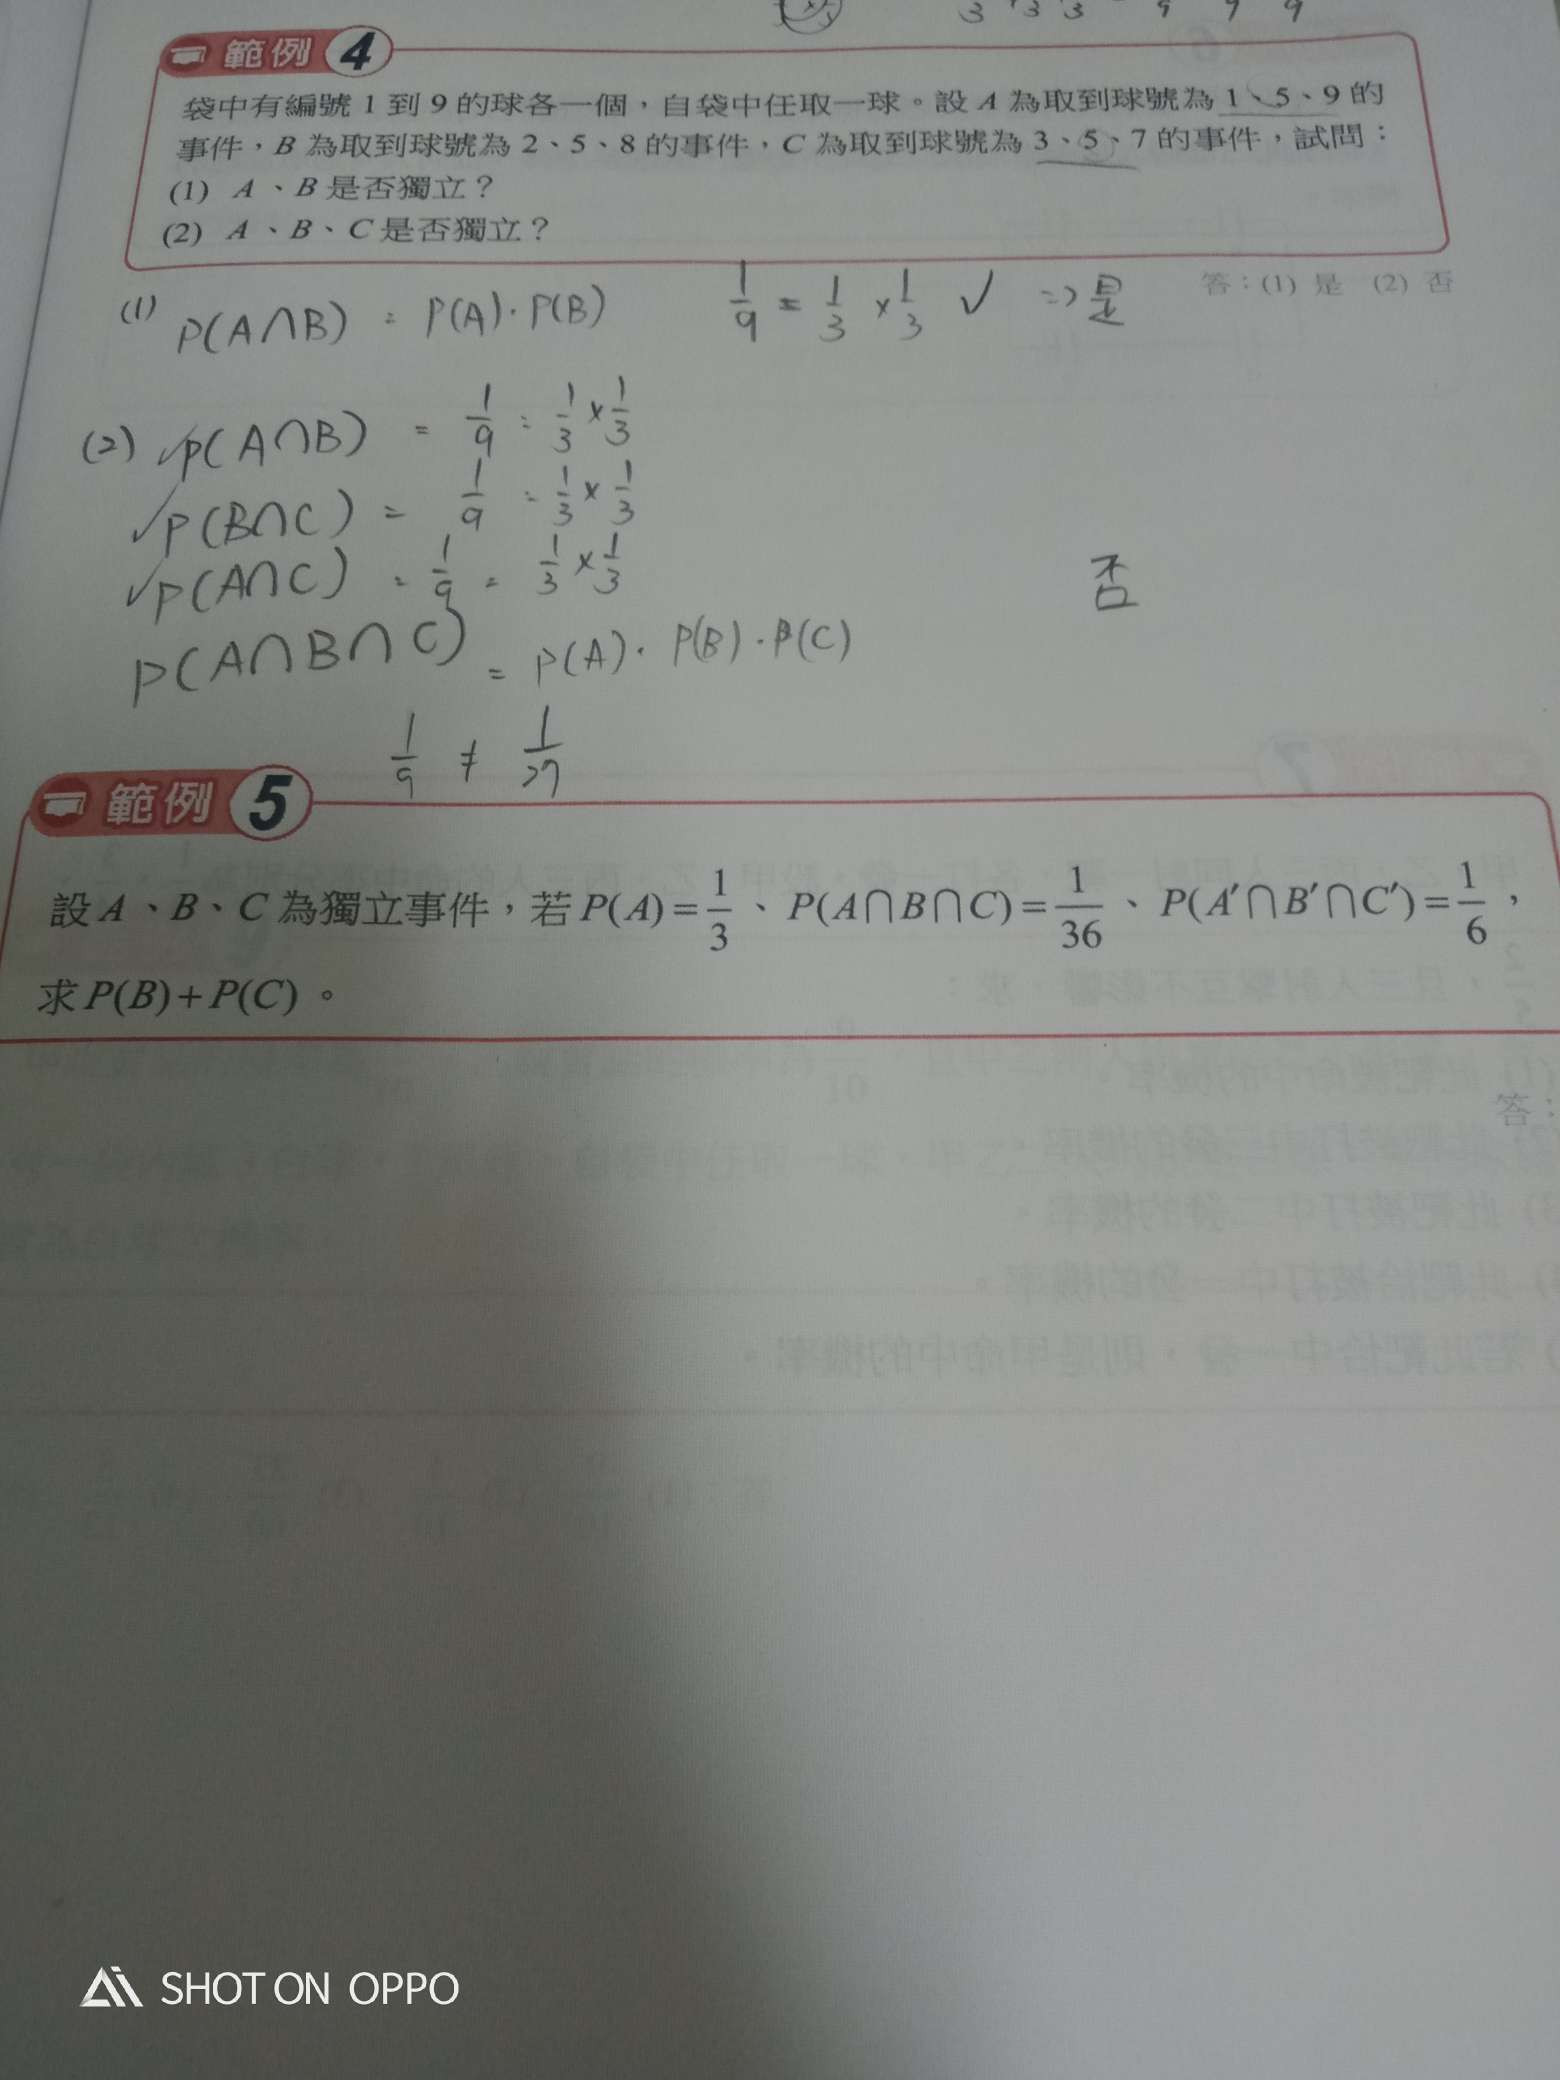 範例 4
袋中有編號 1 到 9 的球各一個，自袋中任取一球。設 A 為取到球號為 1、5、9 的
事件，B 為取到球號為 2、5、8 的事件，C 為取到球號為 3、5、7 的事件，試問：
(1) A、B 是否獨立？
(2) A、B、C 是否獨立？
答：(1) 是 (2) 否
(1) P(A∩B) = P(A)·P(B) 1/9 = 1/3 × 1/3 ✓ => 是
(2) ✓P(A∩B) = 1/9 = 1/3 × 1/3
✓P(B∩C) = 1/9 = 1/3 × 1/3
✓P(A∩C) = 1/9 = 1/3 × 1/3
否
P(A∩B∩C) = P(A)·P(B)·P(C)
1/9 ≠ 1/27
範例 5
設 A、B、C 為獨立事件，若 P(A)=1/3、P(A∩B∩C)=1/36、P(A′∩B′∩C′)=1/6，
求 P(B)+P(C)。
答：
SHOT ON OPPO